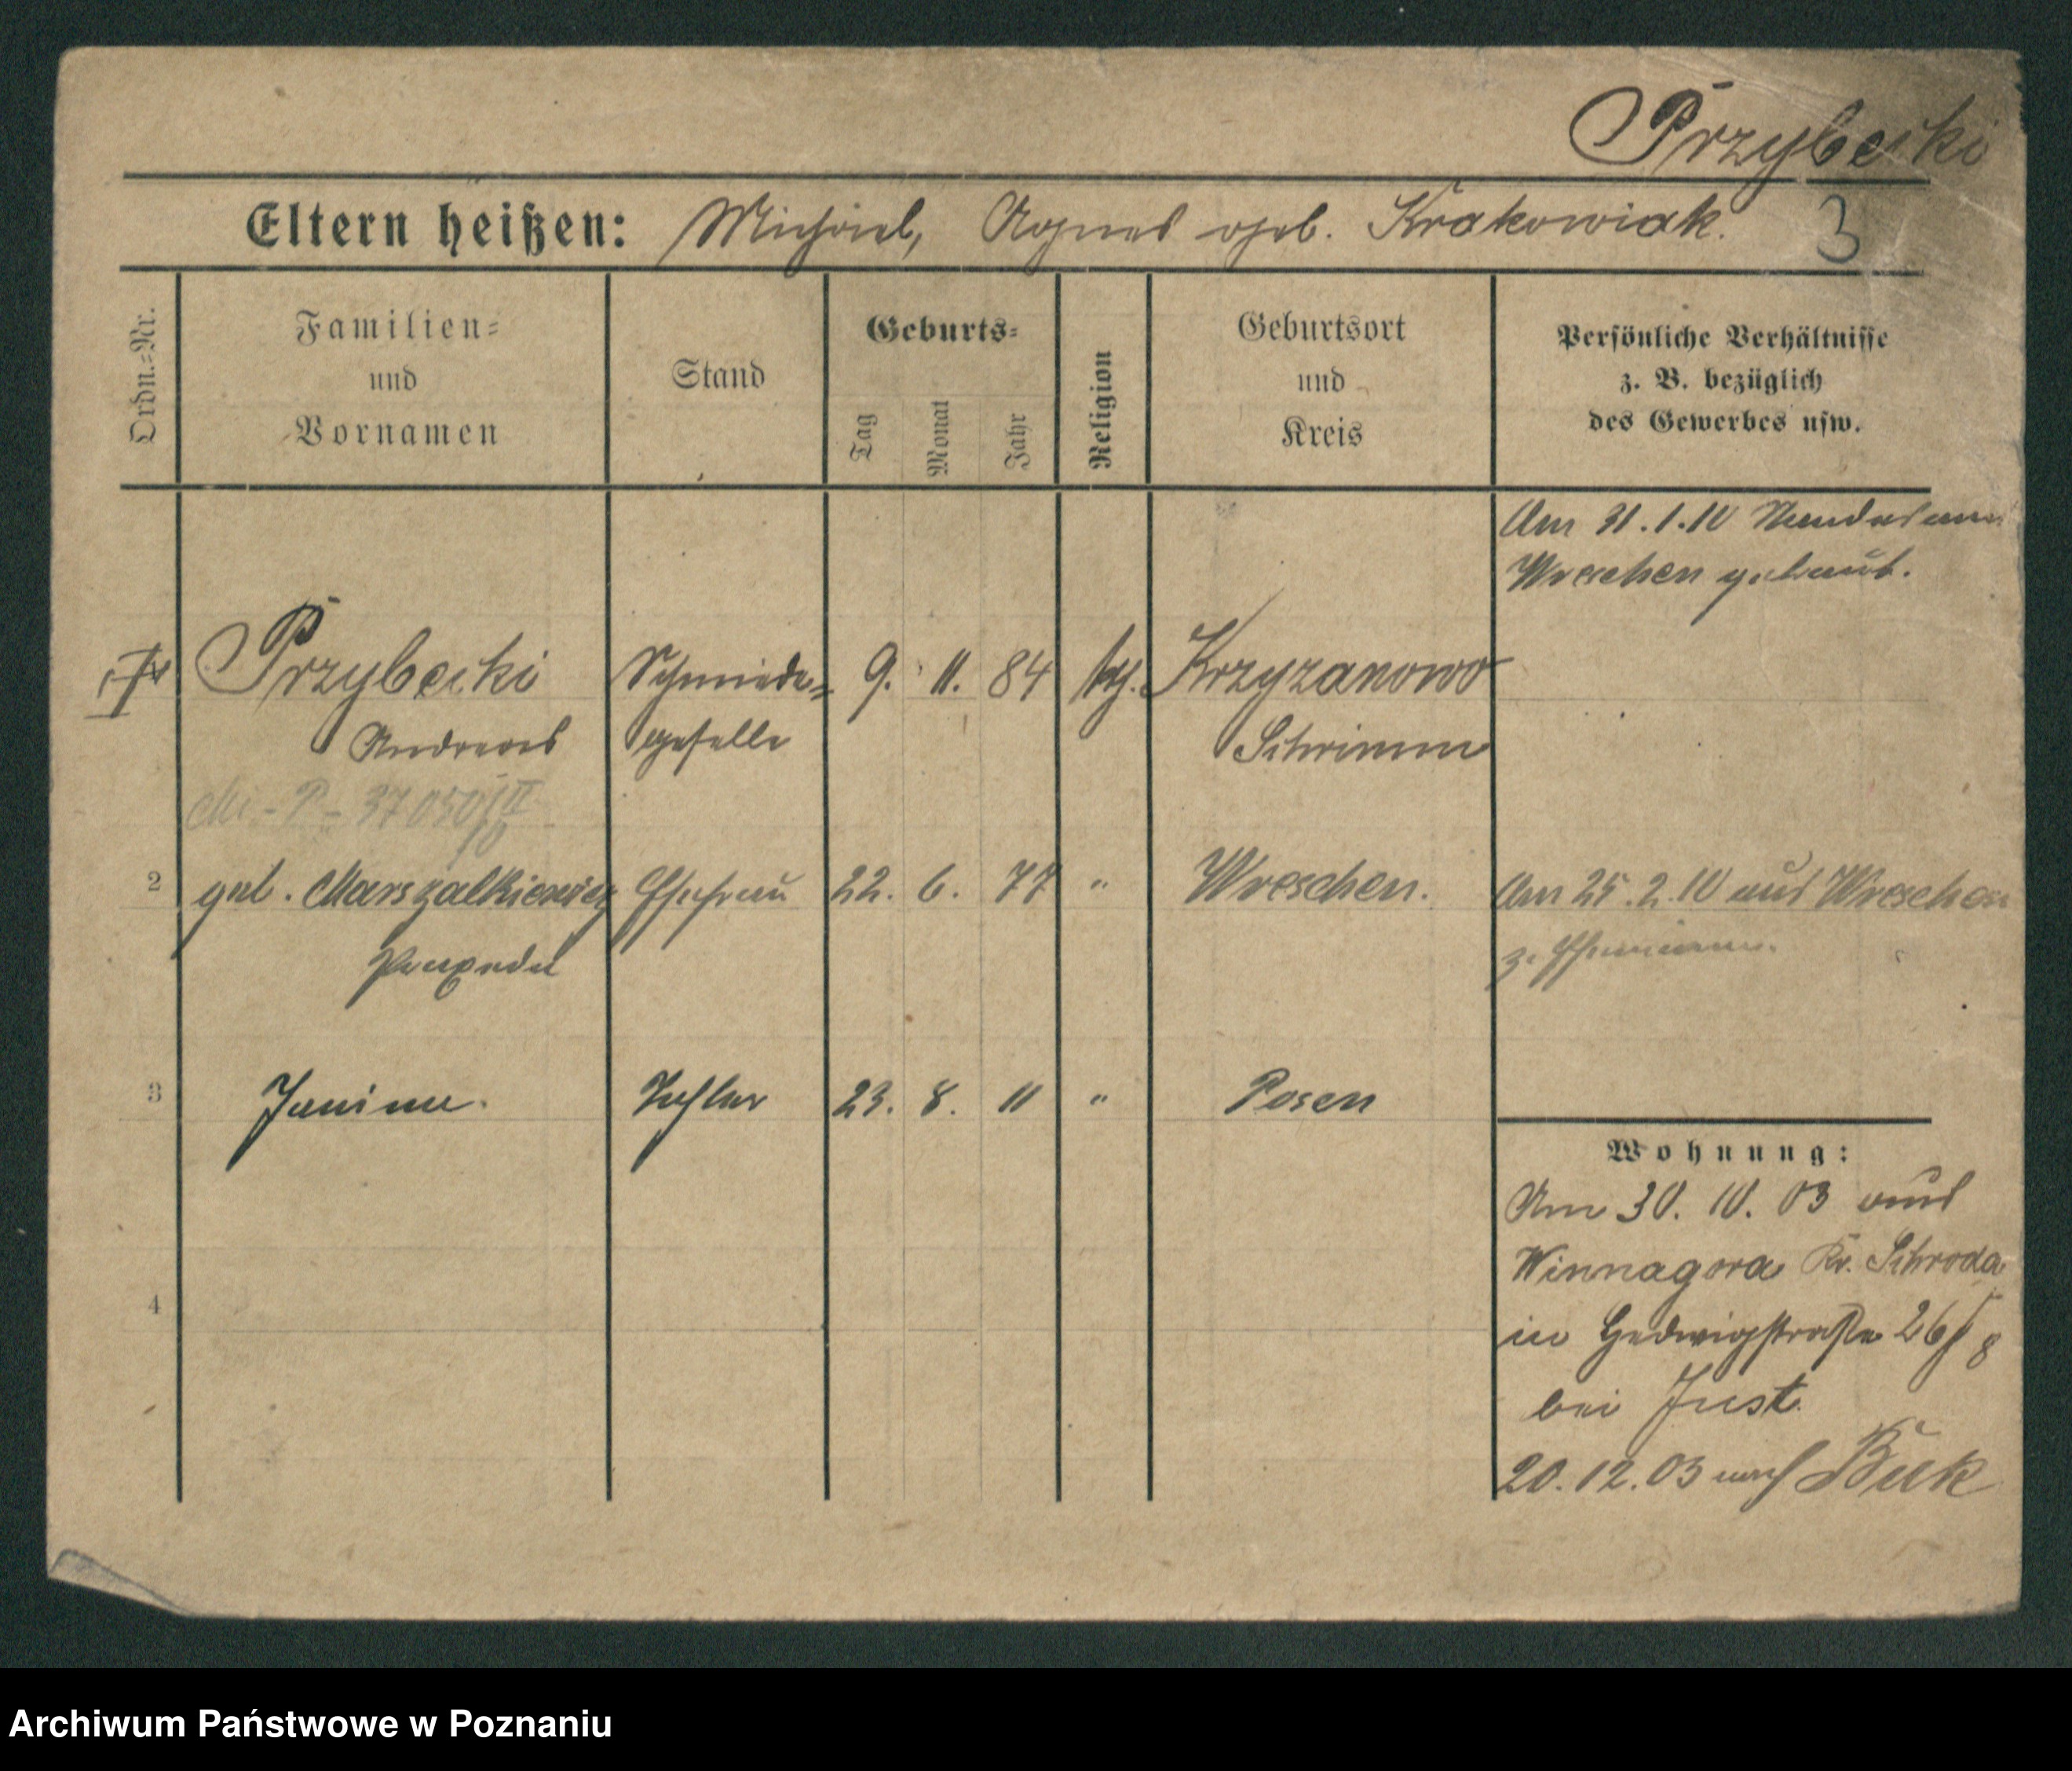 Przybecki
Eltern heißen: Michael, Agnes geb. Krakowiak.
3
Ordn.=Nr.
Familien=
und
Vornamen
Stand
Geburts=
Tag
Monat
Jahr
Religion
Geburtsort
und
Kreis
Persönliche Verhältnisse
z. B. bezüglich
des Gewerbes usw.
Am 31.1.10 Standesamt
Wreschen getraut.
Przybecki Schmiede= 9. 11. 84 kth. Krzyzanowo
Andreas geselle Schrimm
37050
2 geb. Marszalkiewicz Ehefrau 22. 6. 77 " Wreschen. Am 25.2.10 aus Wreschen
Praxeda z. Ehemann.
3 Janina. Tochter 23. 8. 11 " Posen
Wohnung:
Am 30. 10. 03 aus
Winnagora Kr. Schroda
4
in Hedwigstraße 26/8
bei Just.
20.12.03 nach Buk
Archiwum Państwowe w Poznaniu